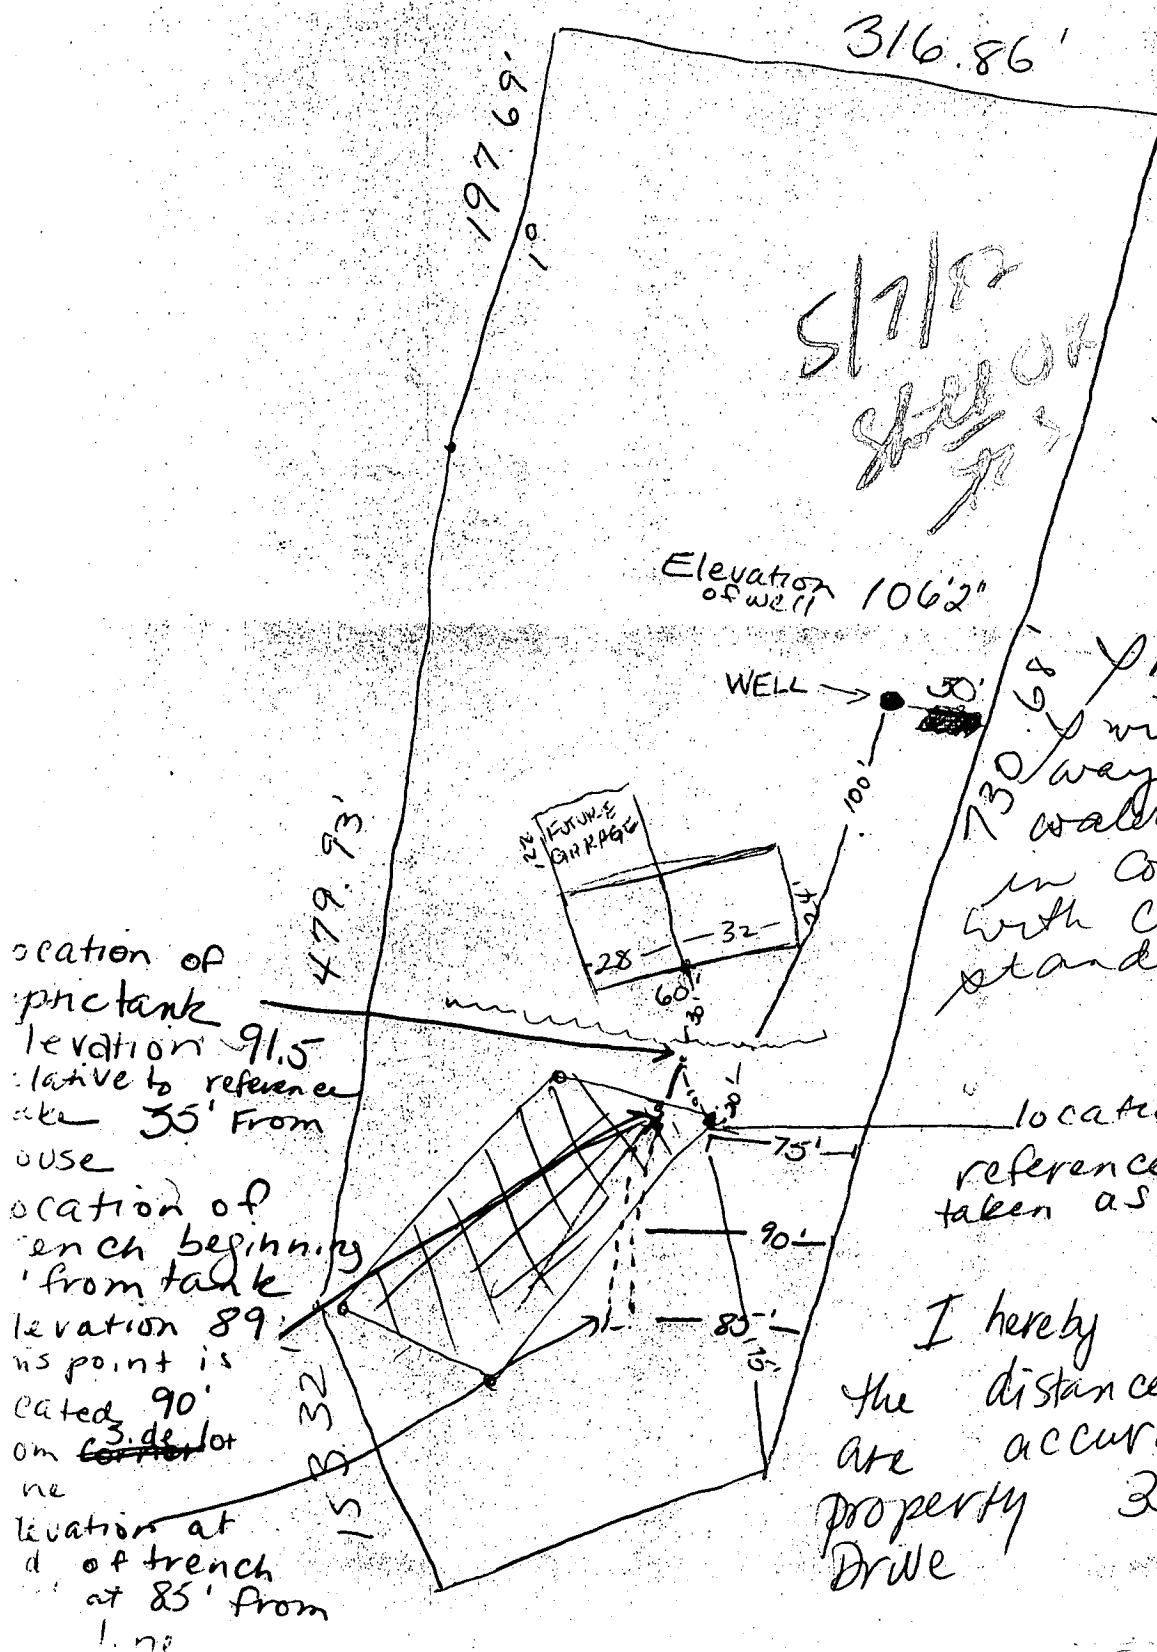 316.86'
197.69'
10
5/7/82
OK
Elevation
of well 106'2"
WELL
50'
730.68'
100'
479.93'
22
FUTURE
GARAGE
24'
28 32
60'
30'
ocation of
ptictank
levation 91.5
lative to reference
ake 35' From
ouse
ocation of
ench beginning
' from tank
levation 89'
is point is
cated 90'
om side lot
ne
levation at
d of trench
at 85' from
75'
90'
85'
75'
153.32'
wi
way
wate
in co
with C
stand
locate
reference
taken as
I hereby
the distance
are accur
property 3
Drive